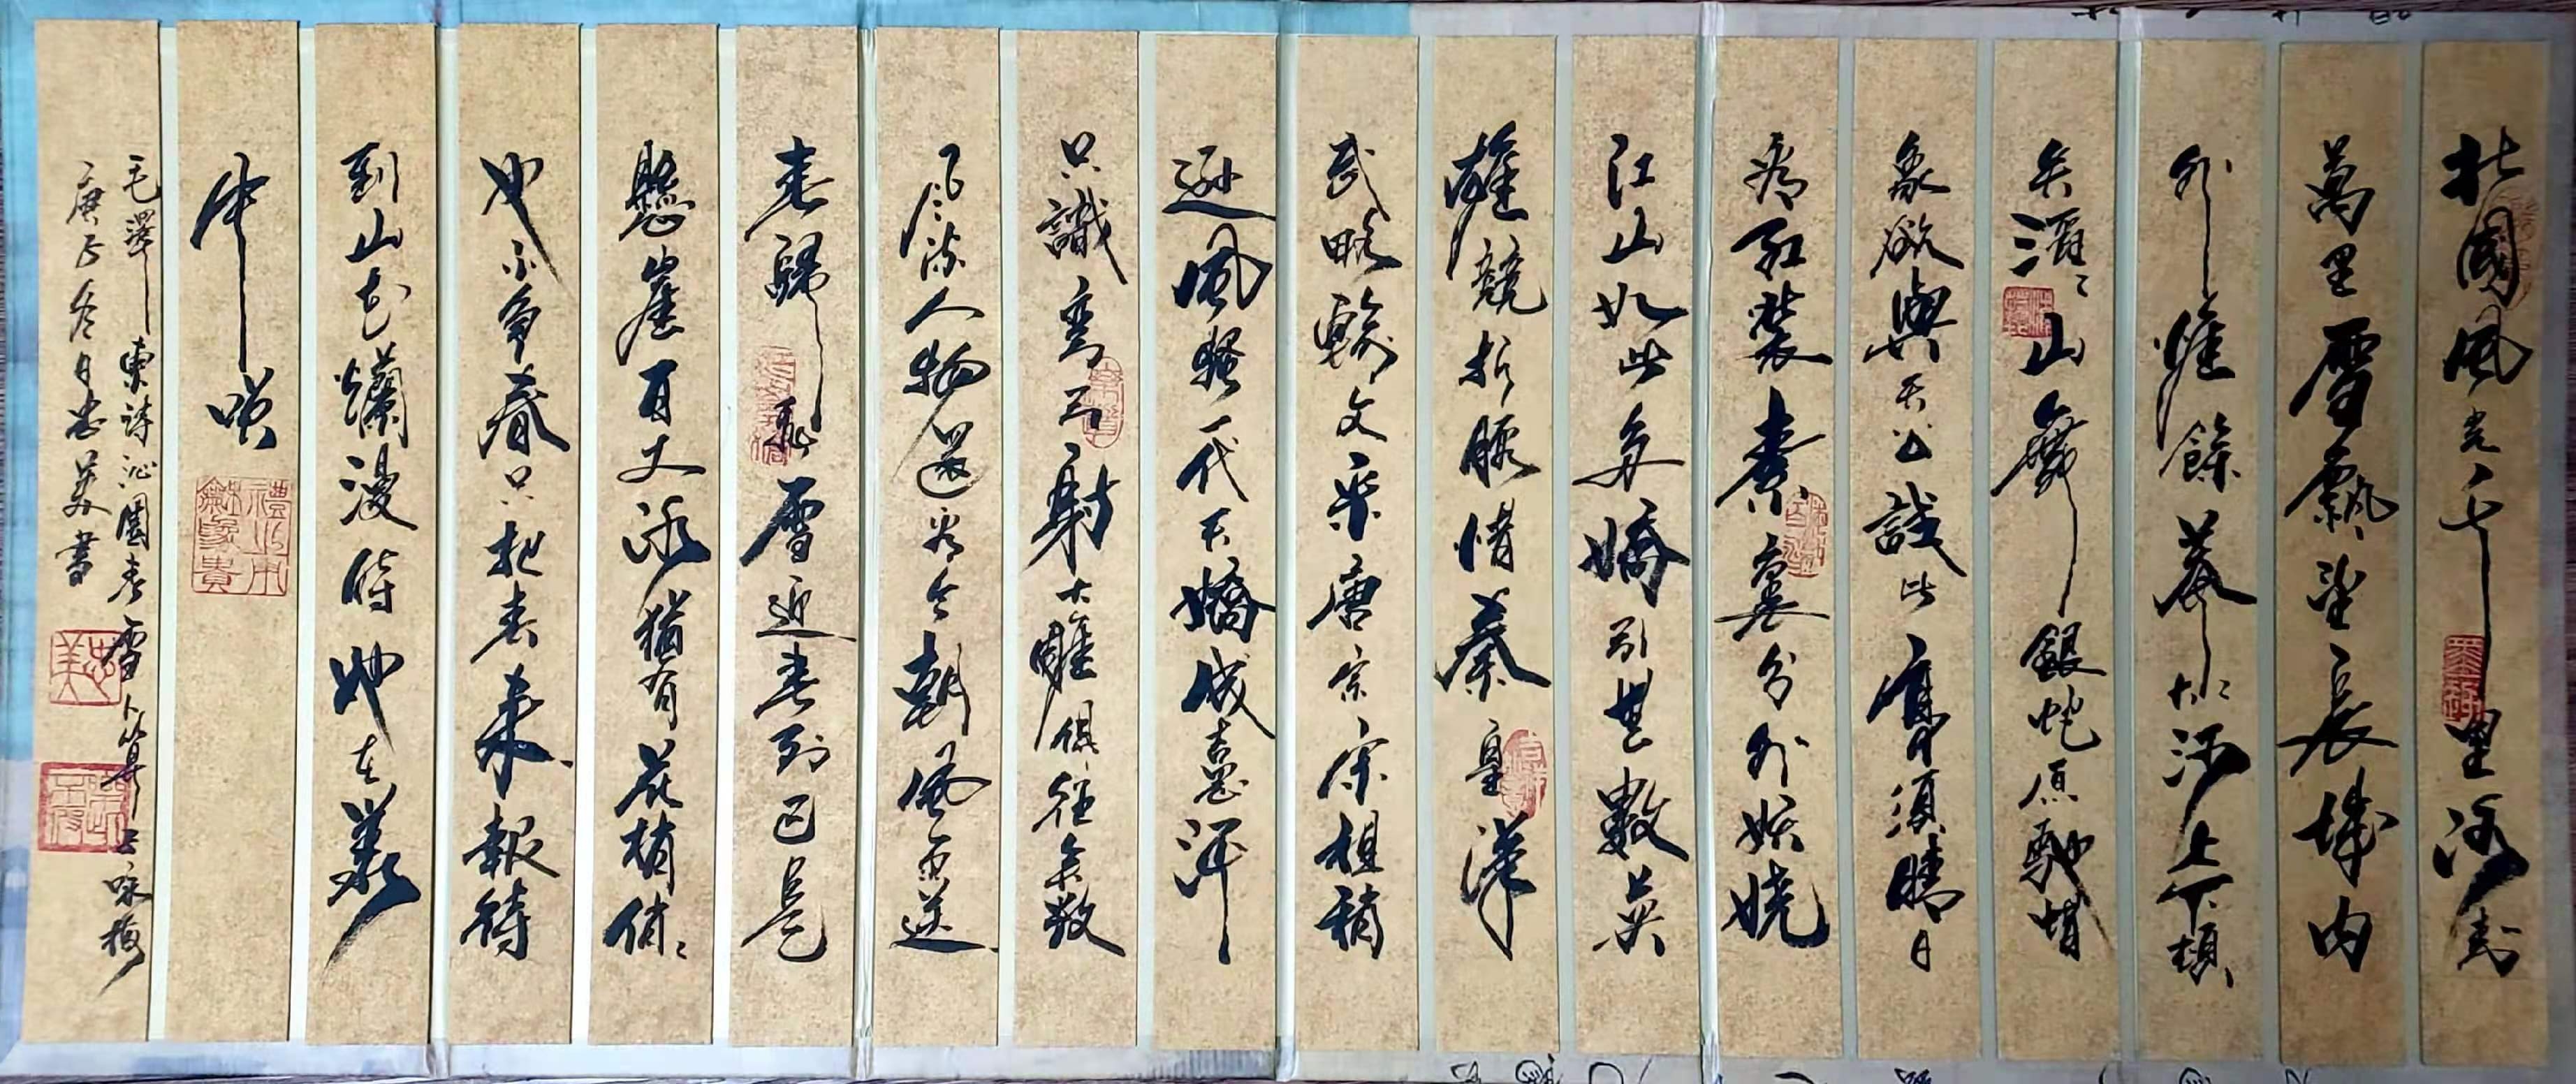 北國風光千里冰封
萬里雪飄望長城內
外惟餘莽々大河上下頓
失滔々山舞銀蛇原馳蜡
象欲與天公試比高須晴日
看紅裝素裹分外妖嬈
江山如此多嬌引無數英
雄競折腰惜秦皇漢
武略輸文采唐宗宋祖稍
遜風騷一代天嬌成吉思汗
只識彎弓射大雕俱往矣數
風流人物還看今朝風雨送
春歸飛雪迎春到已是
懸崖百丈冰猶有花枝俏々
也不爭春只把春來報待
到山花爛漫時她在叢
中笑
禮之用
龢爲貴
毛澤東詩沁園春雪卜算子咏梅
庚子冬日忠美書
忠美